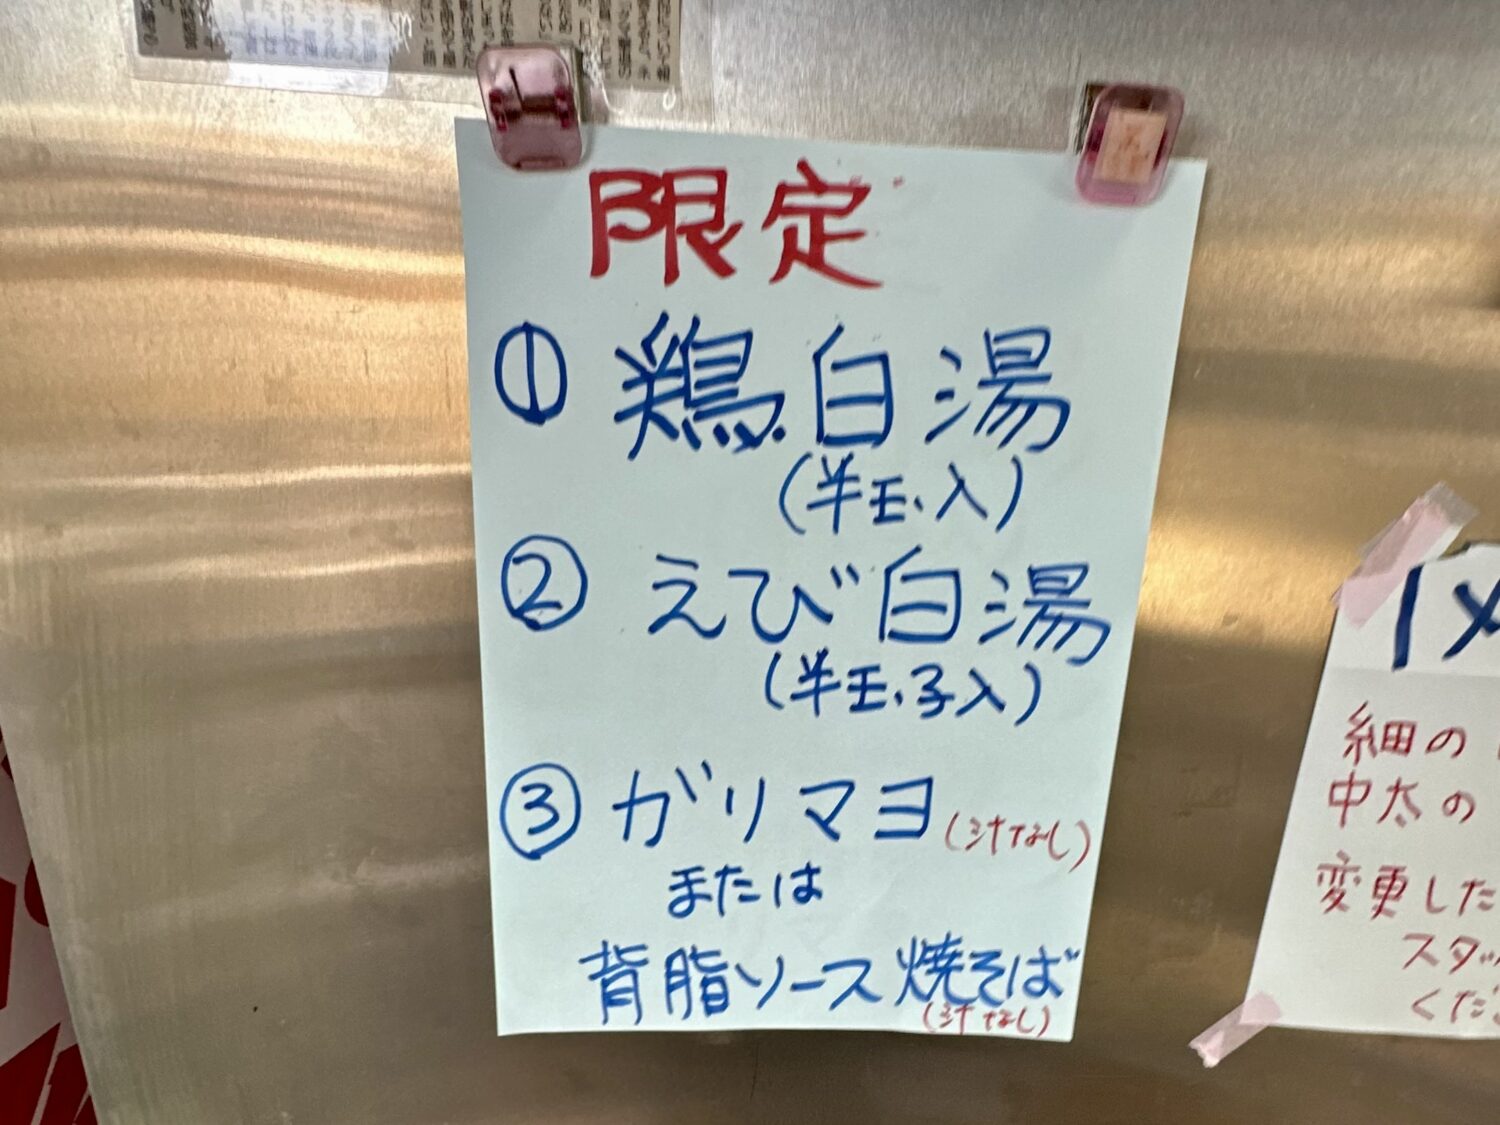 限定
① 鶏白湯
(半玉、入)
② えび白湯
(半玉、子入)
③ ガリマヨ (汁なし)
または
背脂ソース焼そば
(汁なし)
細の
中太の
変更した
スタッ
くだ